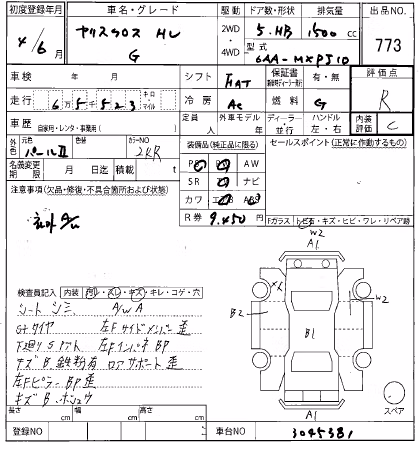 初度登録年月
車名・グレード
駆動
ドア数・形状
排気量
出品NO.
4/6月
ヤリスクロス HV
G
2WD
・
4WD
5.HB
1500 cc
型式
6AA-MXPJ10
773
車検 年 月
シフト
FAT
保証書
有・無
評価点
R
走行 6万5千523 キロ マイル
冷房
AC
燃料
G
車歴
自家用・レンタ・事業用( )
定員 人
外車モデル 年
ディーラー・並行
ハンドル 左・右
内装評価 C
外色
元色
パールII
色替
カラーNO
2KR
装備品(純正品に限る)
セールスポイント(正常に作動するもの)
名義変更期限 月 日迄
積載 t
PS
AW
SR
ナビ
カワ
R券 9.450円
注意事項(欠品・修復・不具合箇所および状態)
社外A/W
Fガラス トビ石・キズ・ヒビ・ワレ・リペア跡
検査員記入
内装
汚レ・スレ・キズ・キレ・コゲ・穴
シートシミ A/W A
キズB. 鉄粉有 ロアサポート歪
左Fピラー BP歪
A1
W2
W2
B2
B1
A1
スペア
長さ cm
幅 cm
高さ cm
登録NO
車台NO
3045381